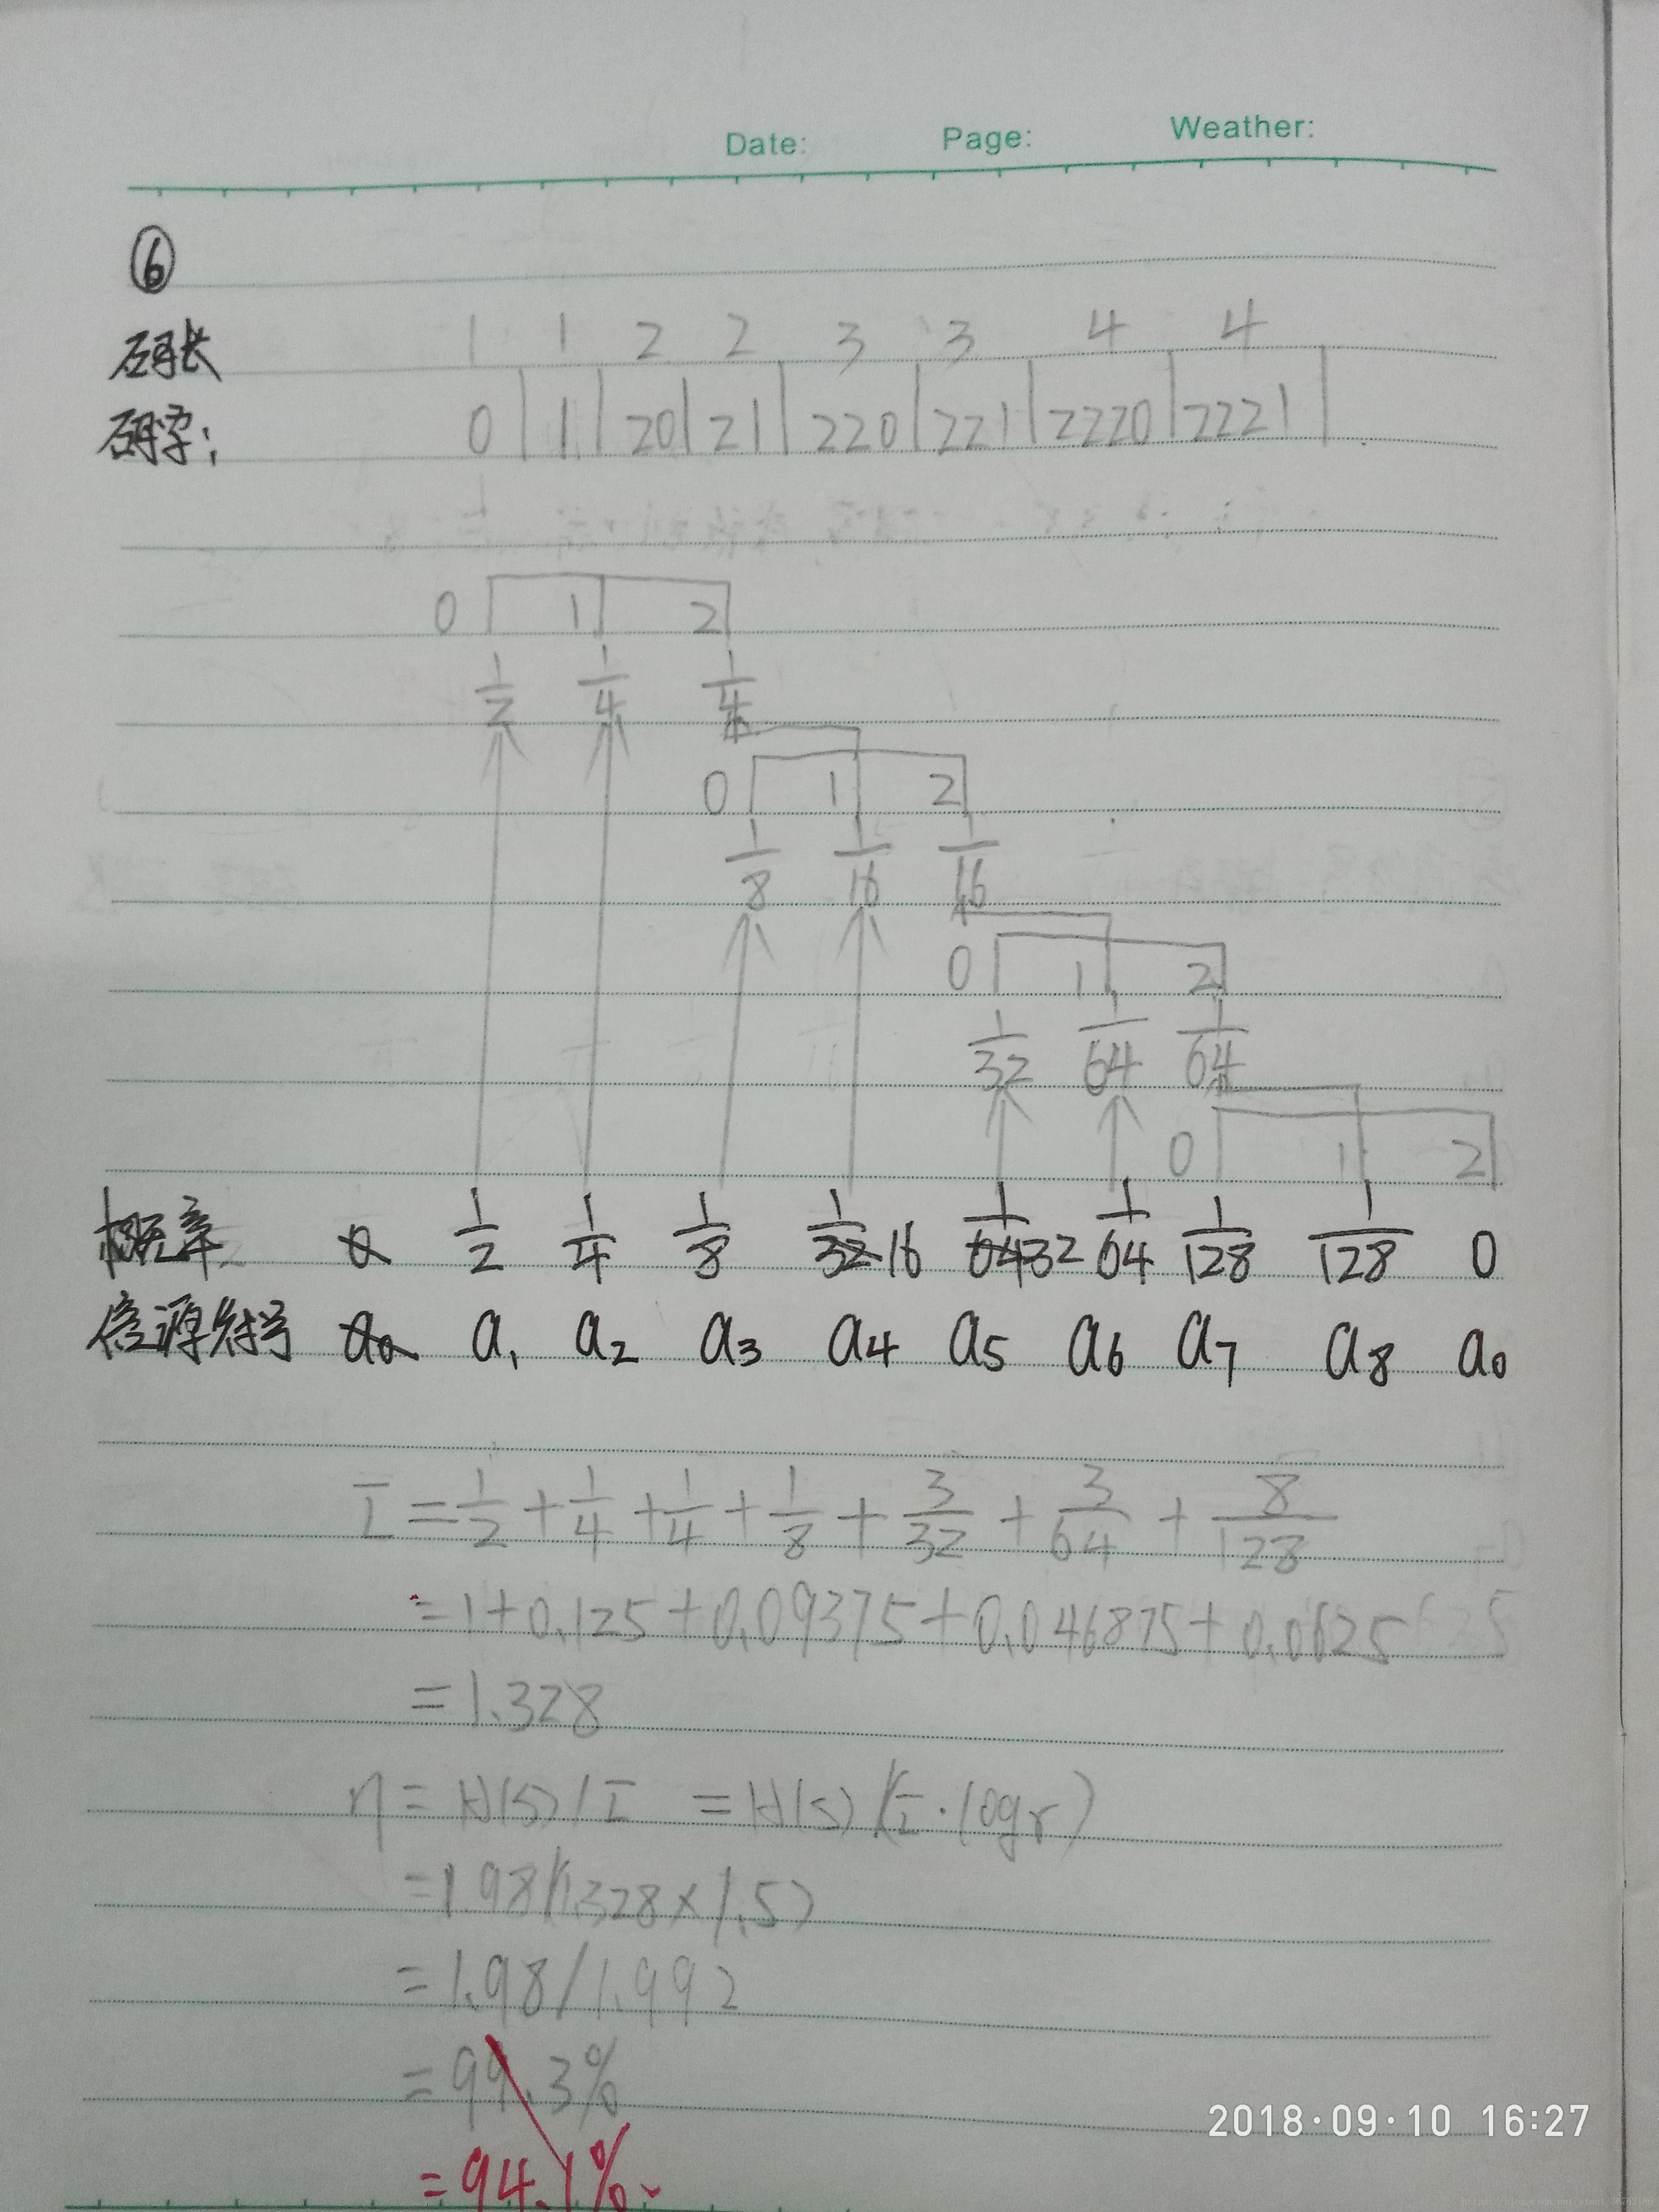 Date: Page: Weather:
⑥
码长 1 1 2 2 3 3 4 4
码字: 0 | 1 | 20 | 21 | 220 | 221 | 2220 | 2221 |
0 1 2
1/2 1/4 1/4
0 1 2
1/8 1/16 1/16
0 1 2
1/32 1/64 1/64
0 1 2
概率 0 1/2 1/4 1/8 1/32 16 1/64 32 1/64 1/128 1/128 0
信源符号 a0 a1 a2 a3 a4 a5 a6 a7 a8 a0
L̄ = 1/2 + 1/4 + 1/4 + 1/8 + 3/32 + 3/64 + 8/128
= 1 + 0.125 + 0.09375 + 0.046875 + 0.0625
= 1.328
η = H(S) / L̄ = H(S) / (L̄ · log r)
= 1.98/(1.328 × 1.5)
= 1.98/1.992
= 99.3%
= 94.1%
2018·09·10 16:27